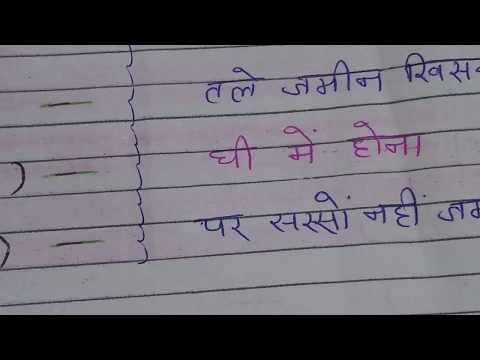 तले जमीन खिस
) — घी में होना
) — पर सरसों नहीं जम